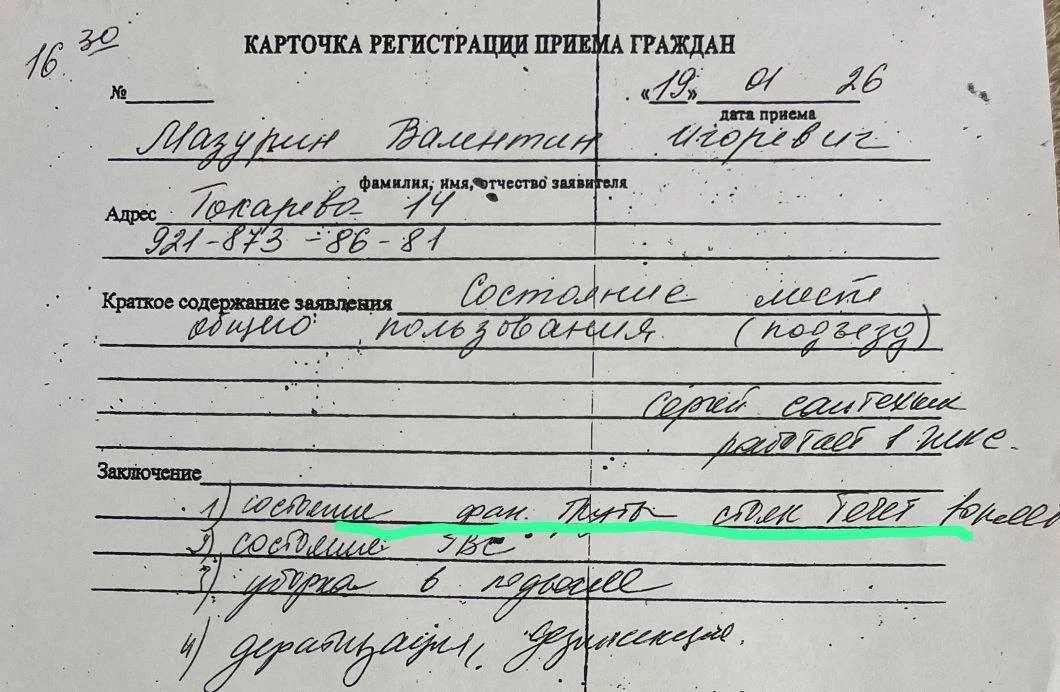 16 30
КАРТОЧКА РЕГИСТРАЦИИ ПРИЕМА ГРАЖДАН
№ «19» 01 26
дата приема
Мазурин Валентин Игоревич
фамилия, имя, отчество заявителя
Адрес Токарева 14
921-873-86-81
Краткое содержание заявления Состояние мест
общего пользования. (подъезд)
Сергей сантехник
работает в ЖКС.
Заключение
1) состояние фан. трубы стояк течет
2) состояние ГВС
3) уборка в подвале
4) дератизация, дезинсекция.